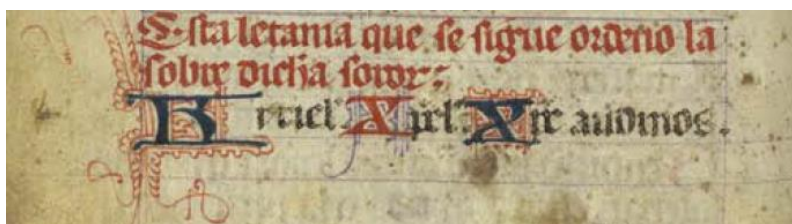 Esta letania que se sigue ordeno la
sobre dicha soror:
Kyriel' Xpel' Xpe audi nos.